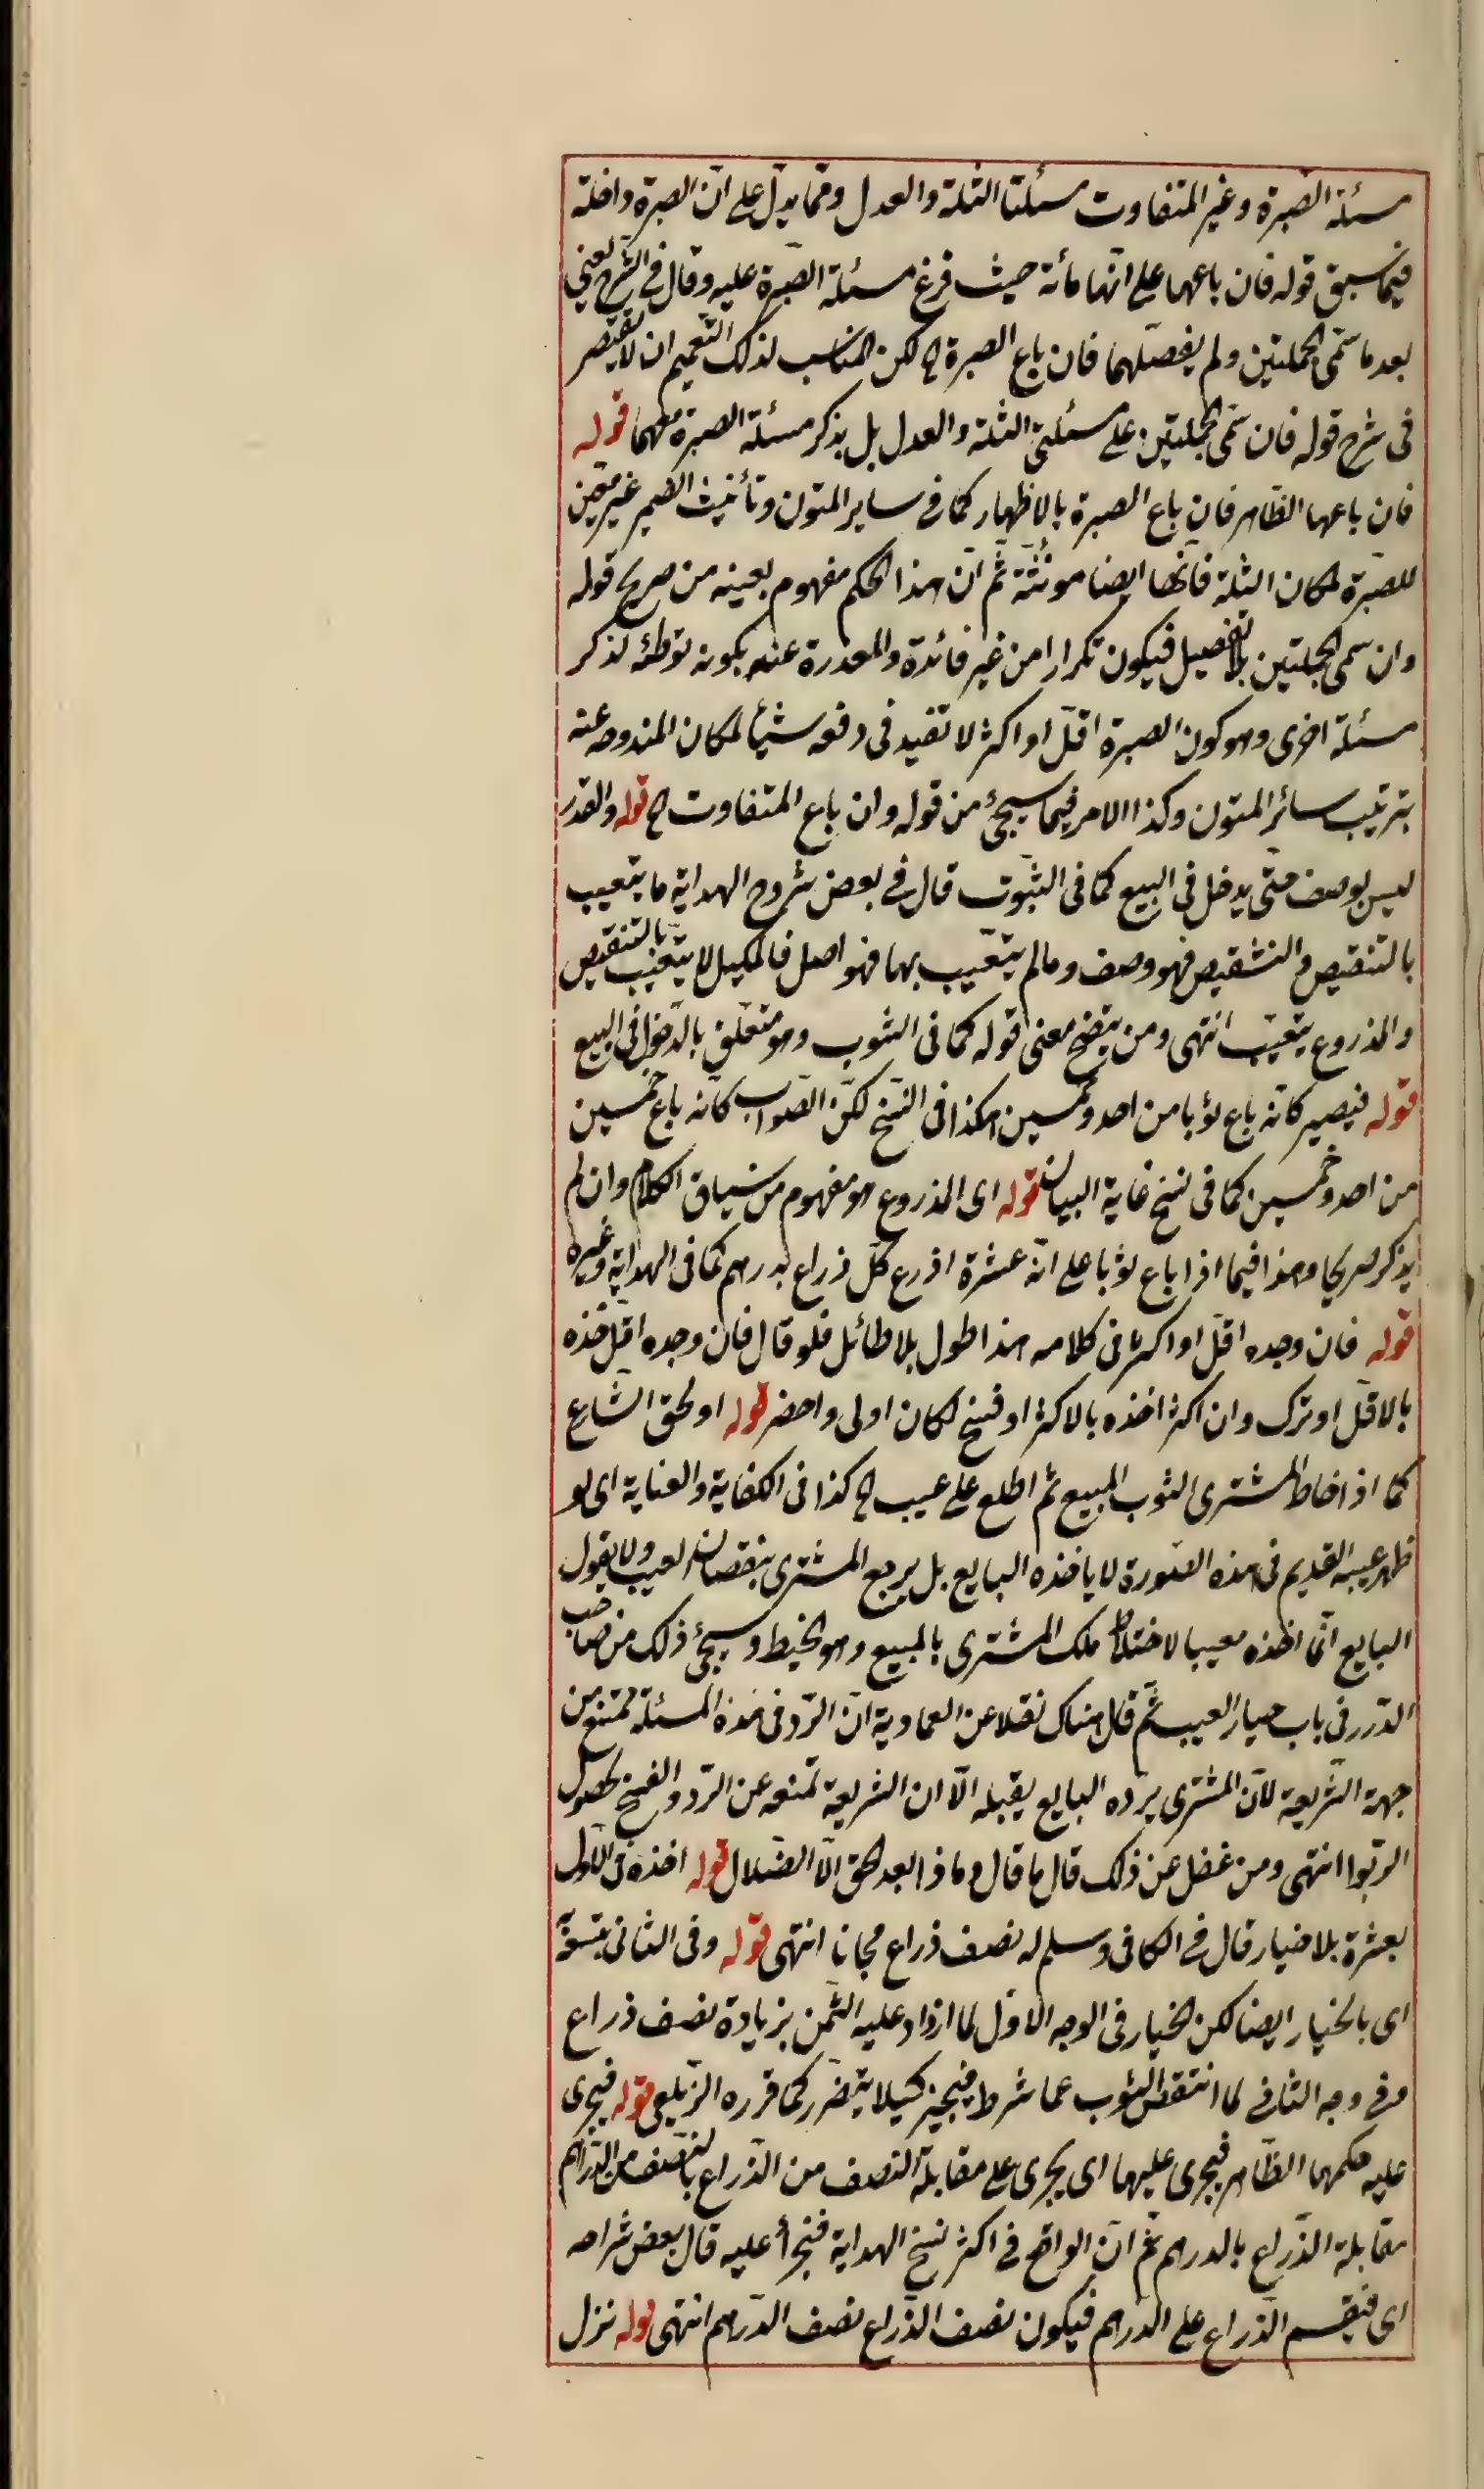 مسئلة الصبرة وغير المتفاوت مسئلتا الثلة والعدل ومما يدل على ان الصبرة داخلة
فيما سبق قوله فان باعها على انها مائة حيث فرغ مسئلة الصبرة عليه وقال في الشرح يعني
بعد ما سمى الجملتين ولم يفصلهما فان باع الصبرة الخ لكن المناسب لذلك التعميم ان لا يقتصر
في شرح قوله فان سمى الجملتين على مسئلتي الثلة والعدل بل يذكر مسئلة الصبرة معهما قوله
فان باعها الظاهر فان باع الصبرة بالاظهار كما في ساير المتون وتأنيث الضمير غير معين
للصبرة لمكان الثلة فانها ايضا مونثة ثم ان هذا الحكم مفهوم بعينه من صريح قوله
وان سمى الجملتين بلا تفصيل فيكون تكرارا من غير فائدة والمعذرة عنه بكونه توطئه لذكر
مسئلة اخرى وهو كون الصبرة اقل او اكثر لا تفيد في دفعه شيأ لمكان المندوحه عنه
بترتيب سائر المتون وكذا الامر فيما سيجئ من قوله وان باع المتفاوت الخ قوله والقدر
ليس بوصف حتى يدخل في البيع كما في الثوب قال في بعض شروح الهداية ما يتعيب
بالتنقيص والتشقيص فهو وصف وما لم يتعيب بهما فهو اصل فالمكيل لا يتعيب بالتنقيص
والمذروع يتعيب انتهى ومن يتضح معنى قوله كما في الثوب وهو متعلق بالدخول في البيع
قوله فيصير كانه باع ثوبا من احد وخمسين هكذا في النسخ لكن الصواب كانه باع خمسين
من احد وخمسين كما في نسخ غاية البيان قوله اى المذروع هو مفهوم من سياق الكلام وان لم
يذكر صريحا وهذا فيما اذا باع ثوبا على انه عشرة اذرع كل ذراع بدرهم كما في الهداية وغيره
قوله فان وجده اقل او اكثر في كلامه هذا طول بلا طائل فلو قال فان وجده اقل اخذه
بالاقل او ترك وان اكثر اخذه بالاكثر او فسخ لكان اولى واخصر قوله او لحق الشارع
كما اذا خاط المشترى الثوب المبيع ثم اطلع على عيب الخ كذا في الكفاية والعناية اى لو
ظهر عيبه القديم في هذه الصورة لا ياخذه البايع بل يرجع المشترى بنقصان العيب ولا يقول
البايع انما اخذه معيبا لاختلاط ملك المشترى بالمبيع وهو الخيط وسيجئ ذلك من صاحب
الدرر في باب خيار العيب ثم قال هناك نقلا عن العمادية ان الرد في هذه المسئلة ممتنع من
جهة الشريعة لان المشترى يرده البايع يقبله الا ان الشريعة تمنعه عن الرد والفسخ لحصول
الربوا انتهى ومن غفل عن ذلك قال ما قال وماذا بعد الحق الا الضلال قوله اخذه في الاول
بعشرة بلا خيار قال في الكافي وسلم له نصف ذراع مجانا انتهى قوله وفي الثاني بتسعة
اى بالخيار ايضا لكن الخيار في الوجه الاول لما ازداد عليه الثمن بزيادة نصف ذراع
وفي وجه الثاني لما انتقص الثوب عما شرط فيجيز كيلا يتضرر كما قرره الزيلعي قوله فيجرى
عليه حكمها الظاهر فيجرى عليهما اى يجرى على مقابلة النصف من الذراع بالنصف من الدراهم
مقابلة الذراع بالدرهم ثم ان الواقع في اكثر نسخ الهداية فيتجزأ عليه قال بعض شراحه
اى فيقسم الذراع على الدراهم فيكون نصف الذراع نصف الدرهم انتهى قوله نزل